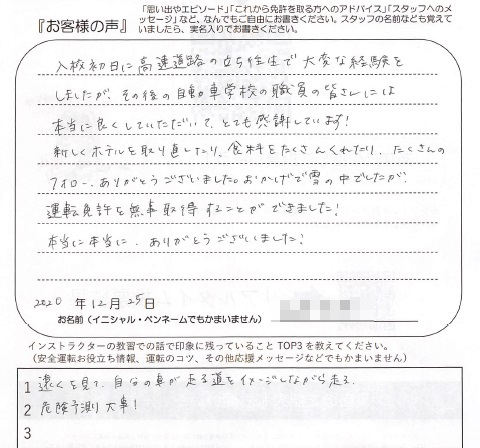 『お客様の声』
「思い出やエピソード」「これから免許を取る方へのアドバイス」「スタッフへのメ
ッセージ」など、なんでもご自由にお書きください。スタッフの名前なども覚えて
いましたら、実名入りでお書きください。
入校初日に高速道路の立ち往生で大変な経験を
しましたが、その後の自動車学校の職員の皆さんには
本当に良くしていただいて、とても感謝しています!
新しくホテルを取り直したり、食料をたくさんくれたり、たくさんの
フォロー、ありがとうございました。おかげで雪の中でしたが、
運転免許を無事取得することができました!
本当に本当に、ありがとうございました!
2020 年 12 月 25 日
お名前(イニシャル・ペンネームでもかまいません)
インストラクターの教習での話で印象に残っていること TOP3 を教えてください。
(安全運転お役立ち情報、運転のコツ、その他応援メッセージなどでもかまいません)
1 遠くを見て、自分の車が走る道をイメージしながら走る。
2 危険予測大事!
3